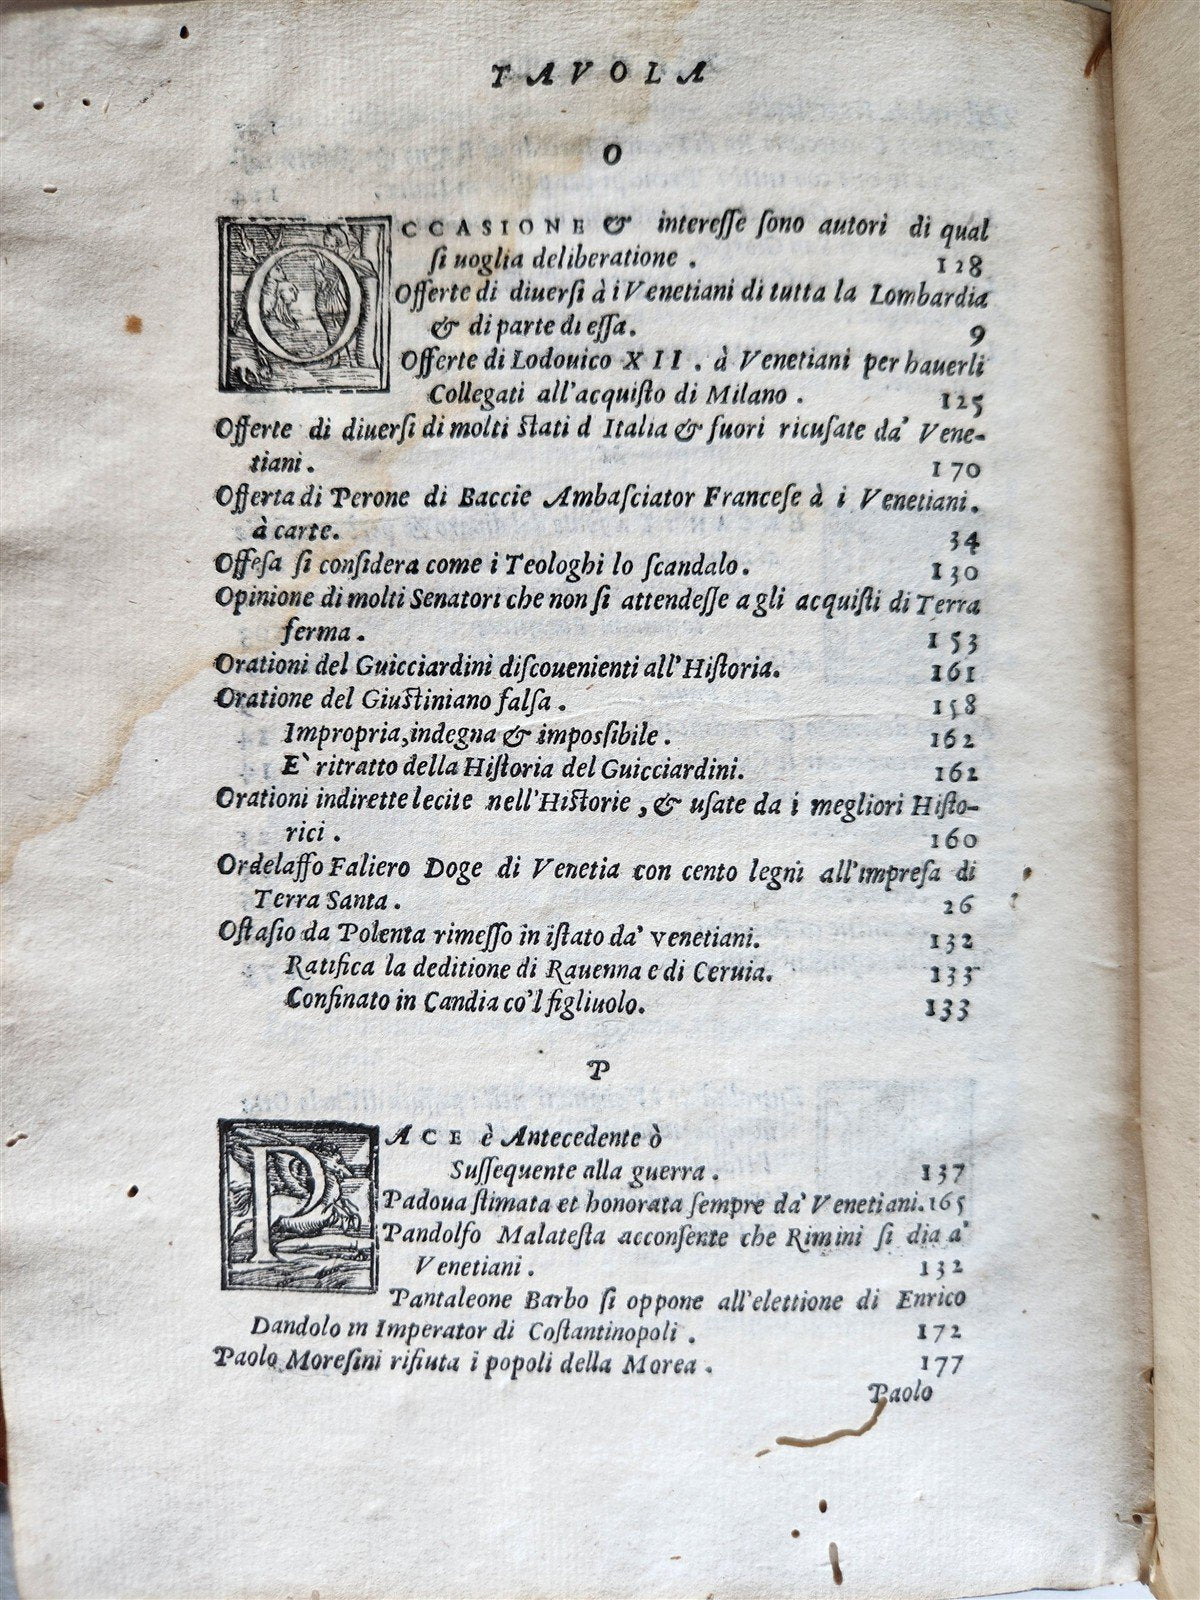 TAVOLA
O
OCCASIONE & intereſſe ſono autori di qual
ſi uoglia deliberatione . 128
Offerte di diuerſi à i Venetiani di tutta la Lombardia
& di parte di eſſa. 9
Offerte di Lodouico XII . à Venetiani per hauerli
Collegati all'acquiſto di Milano . 125
Offerte di diuerſi di molti ſtati d Italia & fuori ricuſate da' Vene-
tiani . 170
Offerta di Perone di Baccie Ambaſciator Franceſe à i Venetiani.
à carte. 34
Offeſa ſi conſidera come i Teologhi lo ſcandalo . 130
Opinione di molti Senatori che non ſi attendeſſe a gli acquiſti di Terra
ferma . 153
Orationi del Guicciardini diſcouenienti all'Hiſtoria. 161
Oratione del Giuſtiniano falſa . 158
Impropria, indegna & impoſsibile . 162
E` ritratto della Hiſtoria del Guicciardini. 162
Orationi indirette lecite nell'Hiſtorie , & uſate da i megliori Hiſto-
rici . 160
Ordelaffo Faliero Doge di Venetia con cento legni all'impreſa di
Terra Santa . 26
Oſtaſio da Polenta rimeſſo in iſtato da' venetiani. 132
Ratifica la deditione di Rauenna e di Ceruia. 133
Confinato in Candia co'l figliuolo. 133
P
PACE è Antecedente ò
Suſſequente alla guerra . 137
Padoua ſtimata et honorata ſempre da' Venetiani. 165
Pandolfo Malateſta acconſente che Rimini ſi dia a'
Venetiani . 132
Pantaleone Barbo ſi oppone all'elettione di Enrico
Dandolo in Imperator di Coſtantinopoli . 172
Paolo Moreſini rifiuta i popoli della Morea . 177
Paolo